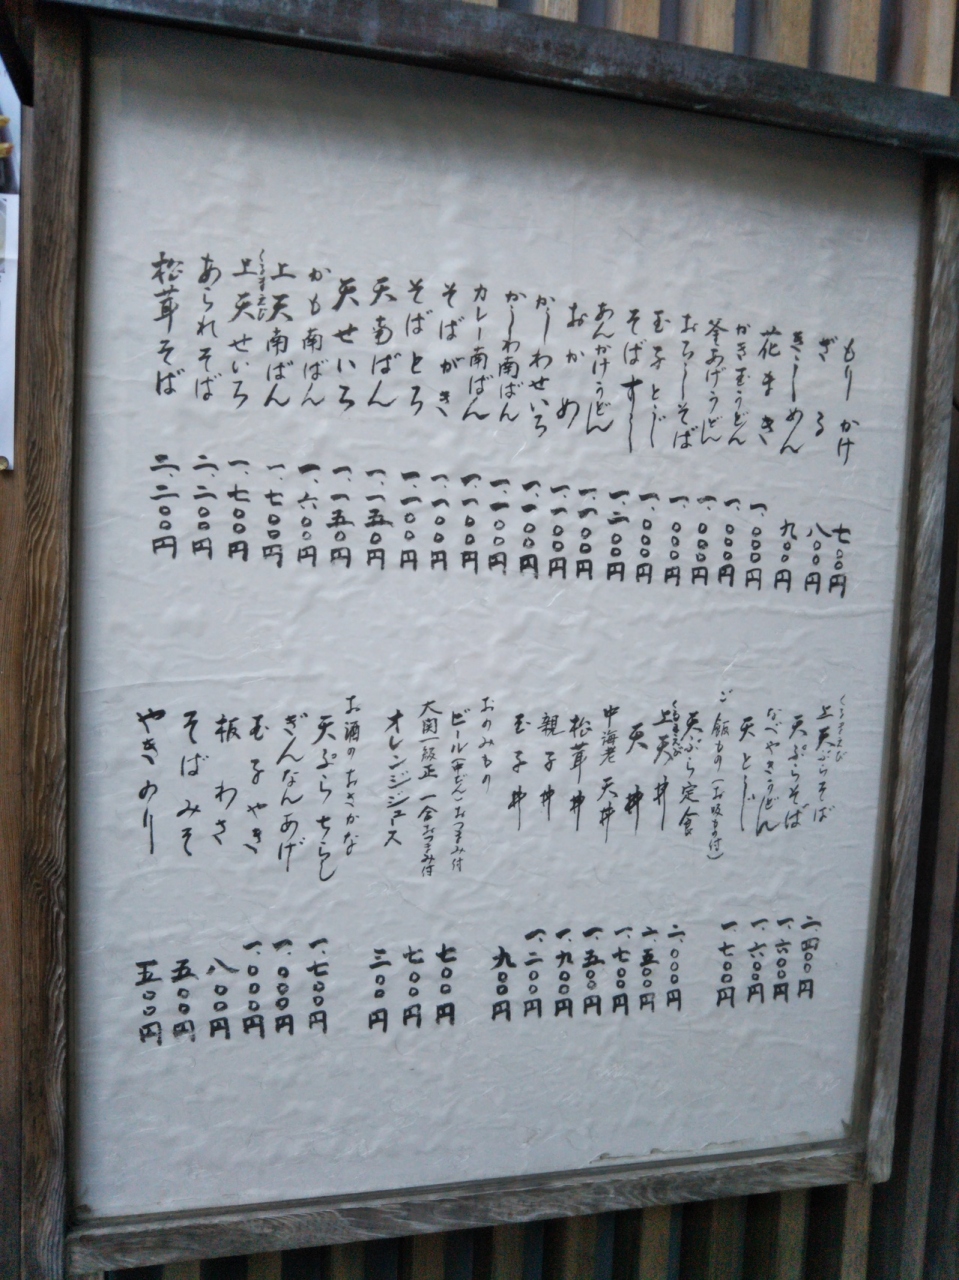 もり かけ 七〇〇円
ざる 八〇〇円
きしめん 九〇〇円
花まき 一、〇〇〇円
かき玉うどん 一、〇〇〇円
釜あげうどん 一、〇〇〇円
おろしそば 一、〇〇〇円
玉子とじ 一、〇〇〇円
そばすし 一、二〇〇円
あんかけうどん 一、一〇〇円
おかめ 一、一〇〇円
かしわせいろ 一、一〇〇円
かしわ南ばん 一、一〇〇円
カレー南ばん 一、一〇〇円
そばがき 一、一〇〇円
そばとろ 一、一〇〇円
天南ばん 一、一五〇円
天せいろ 一、一五〇円
かも南ばん 一、六〇〇円
上天南ばん 一、七〇〇円
くるまえび
上天せいろ 一、七〇〇円
あられそば 二、二〇〇円
松茸そば 二、二〇〇円
くるまえび
上天ぷらそば 二、四〇〇円
天ぷらそば 一、六〇〇円
なべやきうどん 一、六〇〇円
天とじ 一、七〇〇円
ご飯もの(お吸もの付)
天ぷら定食 二、〇〇〇円
くるまえび
上天丼 二、五〇〇円
天丼 一、七〇〇円
中海老天丼 一、五〇〇円
松茸丼 一、九〇〇円
親子丼 一、二〇〇円
玉子丼 九〇〇円
おのみもの
ビール(中びん)おつまみ付 七〇〇円
大関一級正一合おつまみ付 七〇〇円
オレンジジュース 三〇〇円
お酒のおさかな
天ぷらちらし 一、七〇〇円
ぎんなんあげ 一、〇〇〇円
玉子やき 一、〇〇〇円
板わさ 八〇〇円
そばみそ 五〇〇円
やきのり 五〇〇円